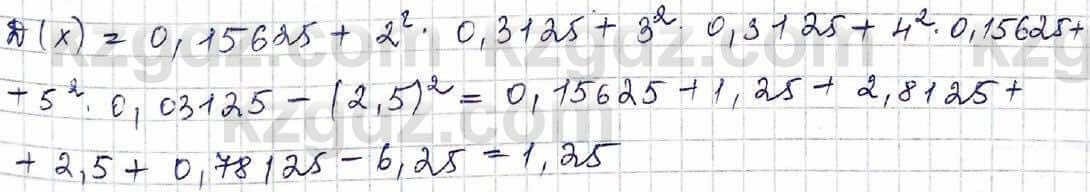 D(x) = 0,15625 + 2². 0,3125 + 3². 0,3125 + 4². 0,15625 +
+ 5². 0,03125 - (2,5)² = 0,15625 + 1,25 + 2,8125 +
+ 2,5 + 0,78125 - 6,25 = 1,25
kzgdz.com